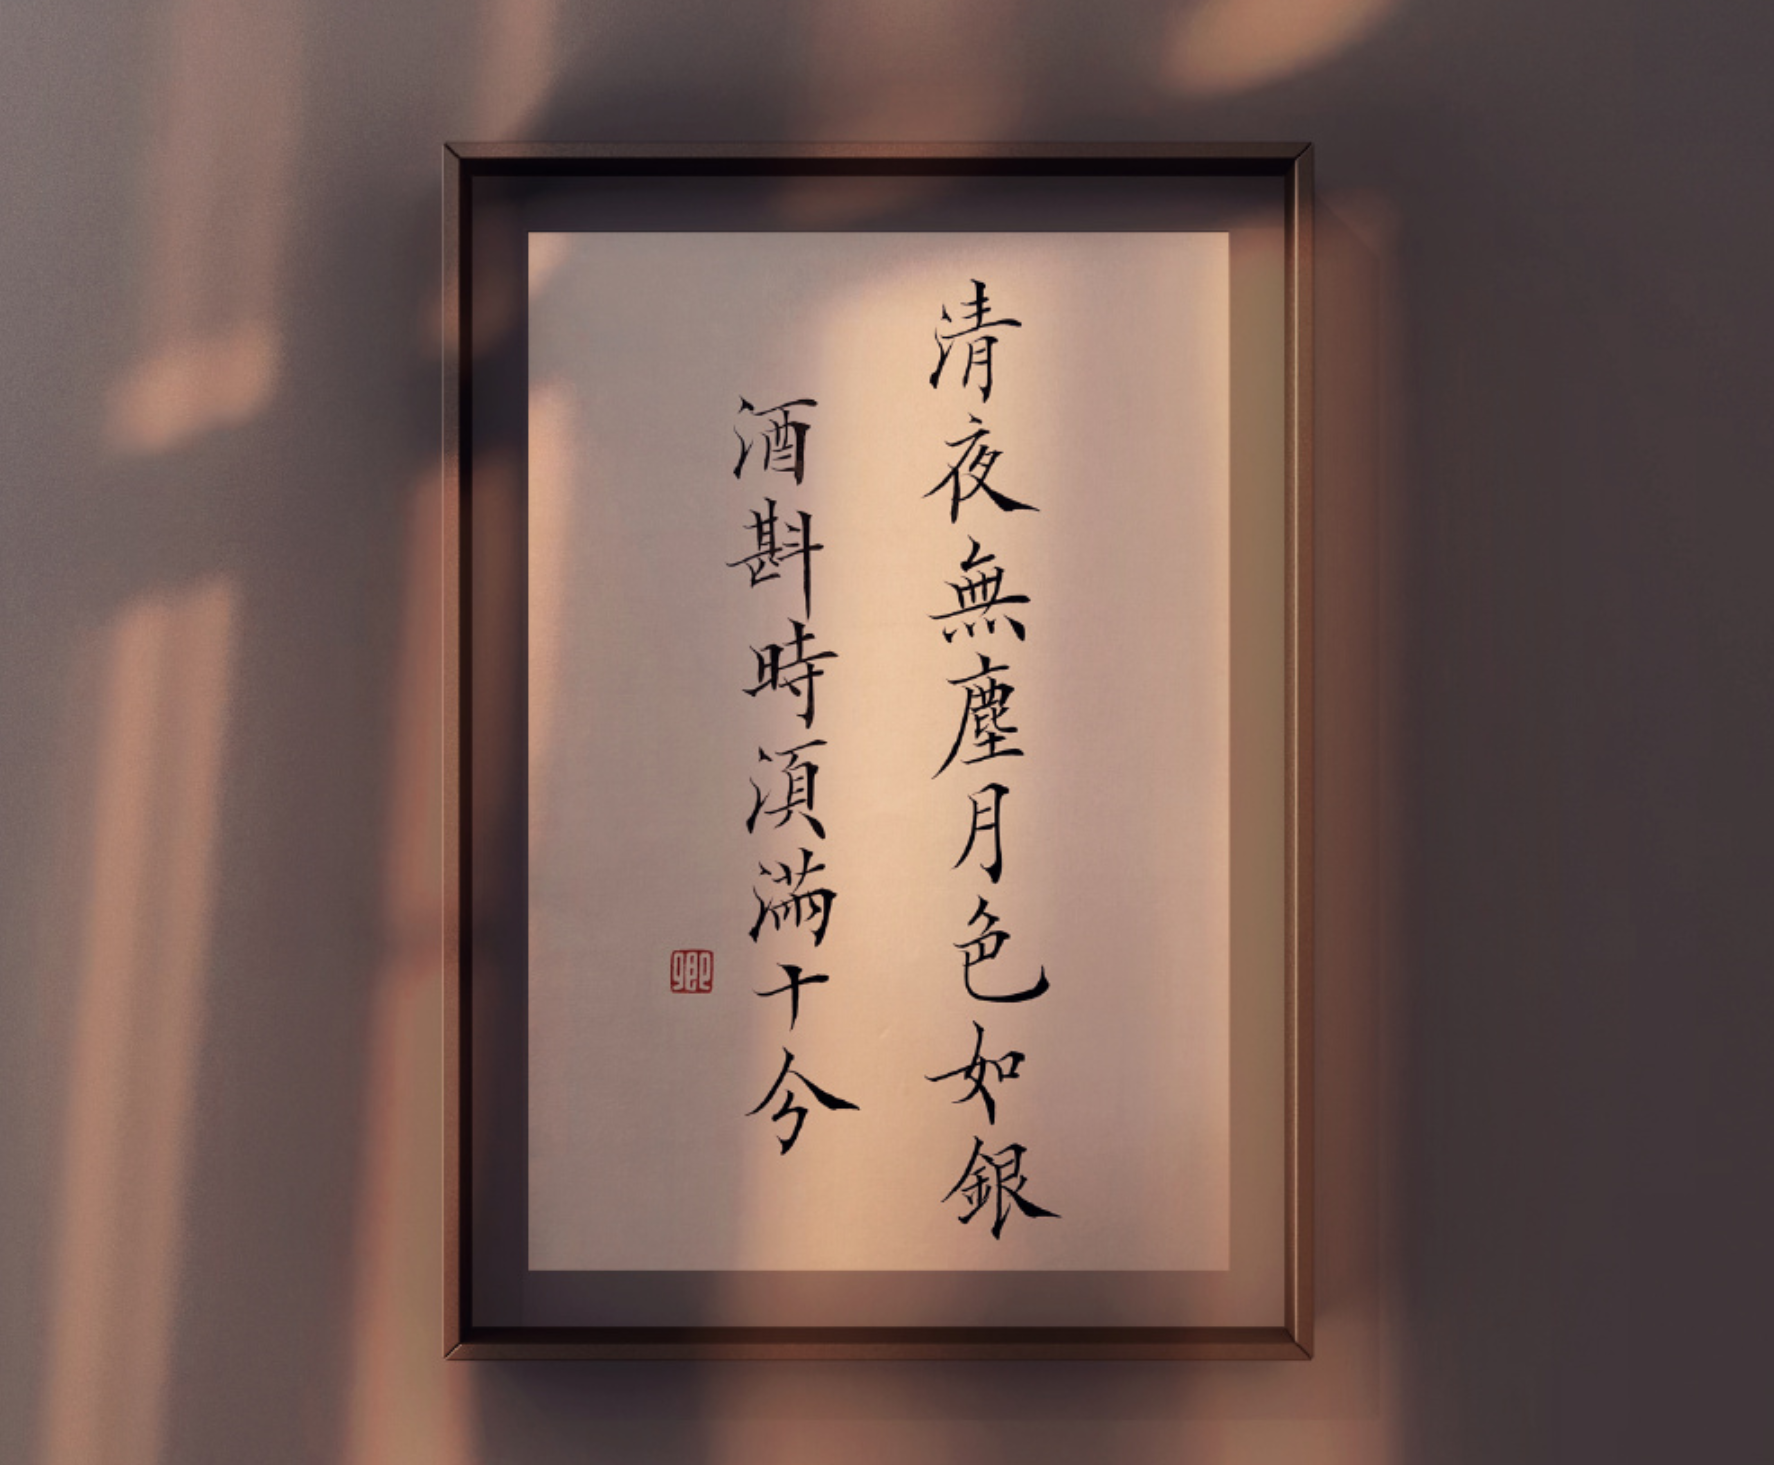 清夜無塵月色如銀
酒斟時湏滿十分
卿